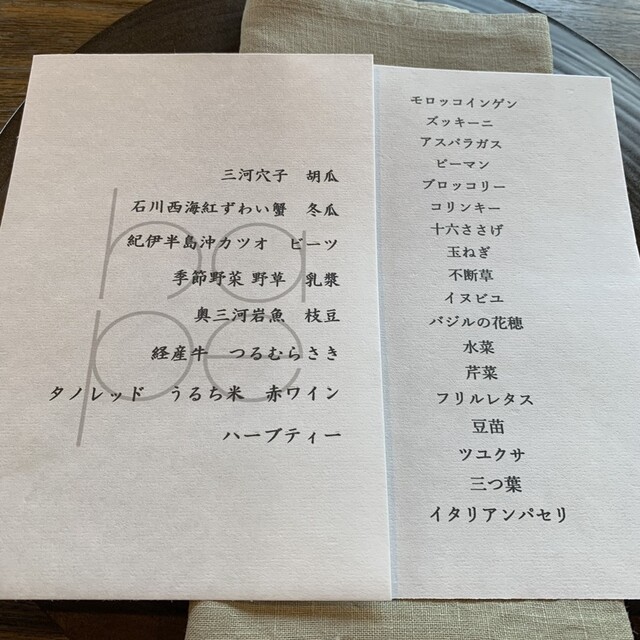 ha
pe
三河穴子　胡瓜
石川西海紅ずわい蟹　冬瓜
紀伊半島沖カツオ　ビーツ
季節野菜 野草　乳漿
奥三河岩魚　枝豆
経産牛　つるむらさき
タノレッド　うるち米　赤ワイン
ハーブティー
モロッコインゲン
ズッキーニ
アスパラガス
ピーマン
ブロッコリー
コリンキー
十六ささげ
玉ねぎ
不断草
イヌビユ
バジルの花穂
水菜
芹菜
フリルレタス
豆苗
ツユクサ
三つ葉
イタリアンパセリ